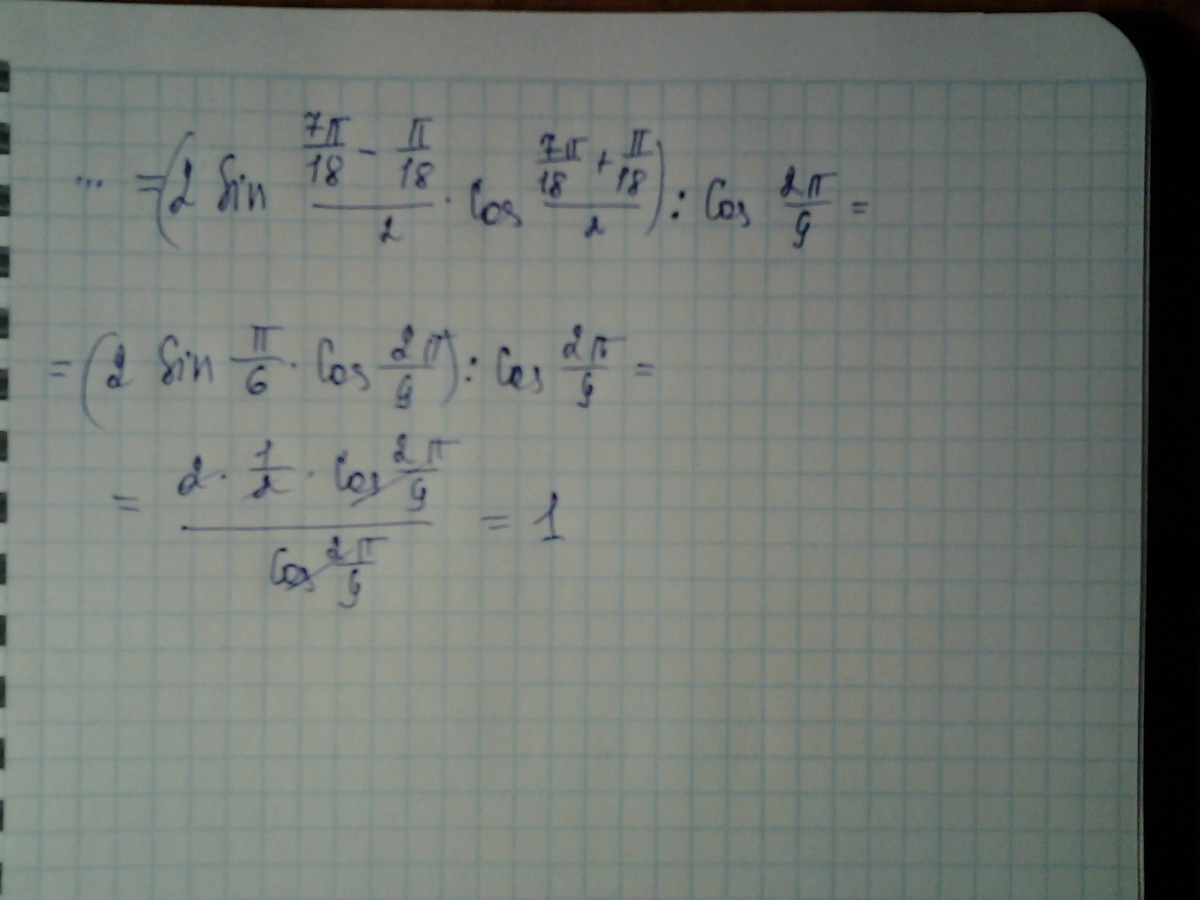 ... = (2 sin (7π/18 - π/18)/2 · cos (7π/18 + π/18)/2) : cos 2π/9 =
= (2 sin π/6 · cos 2π/9) : cos 2π/9 =
= (2 · 1/2 · cos 2π/9)/(cos 2π/9) = 1